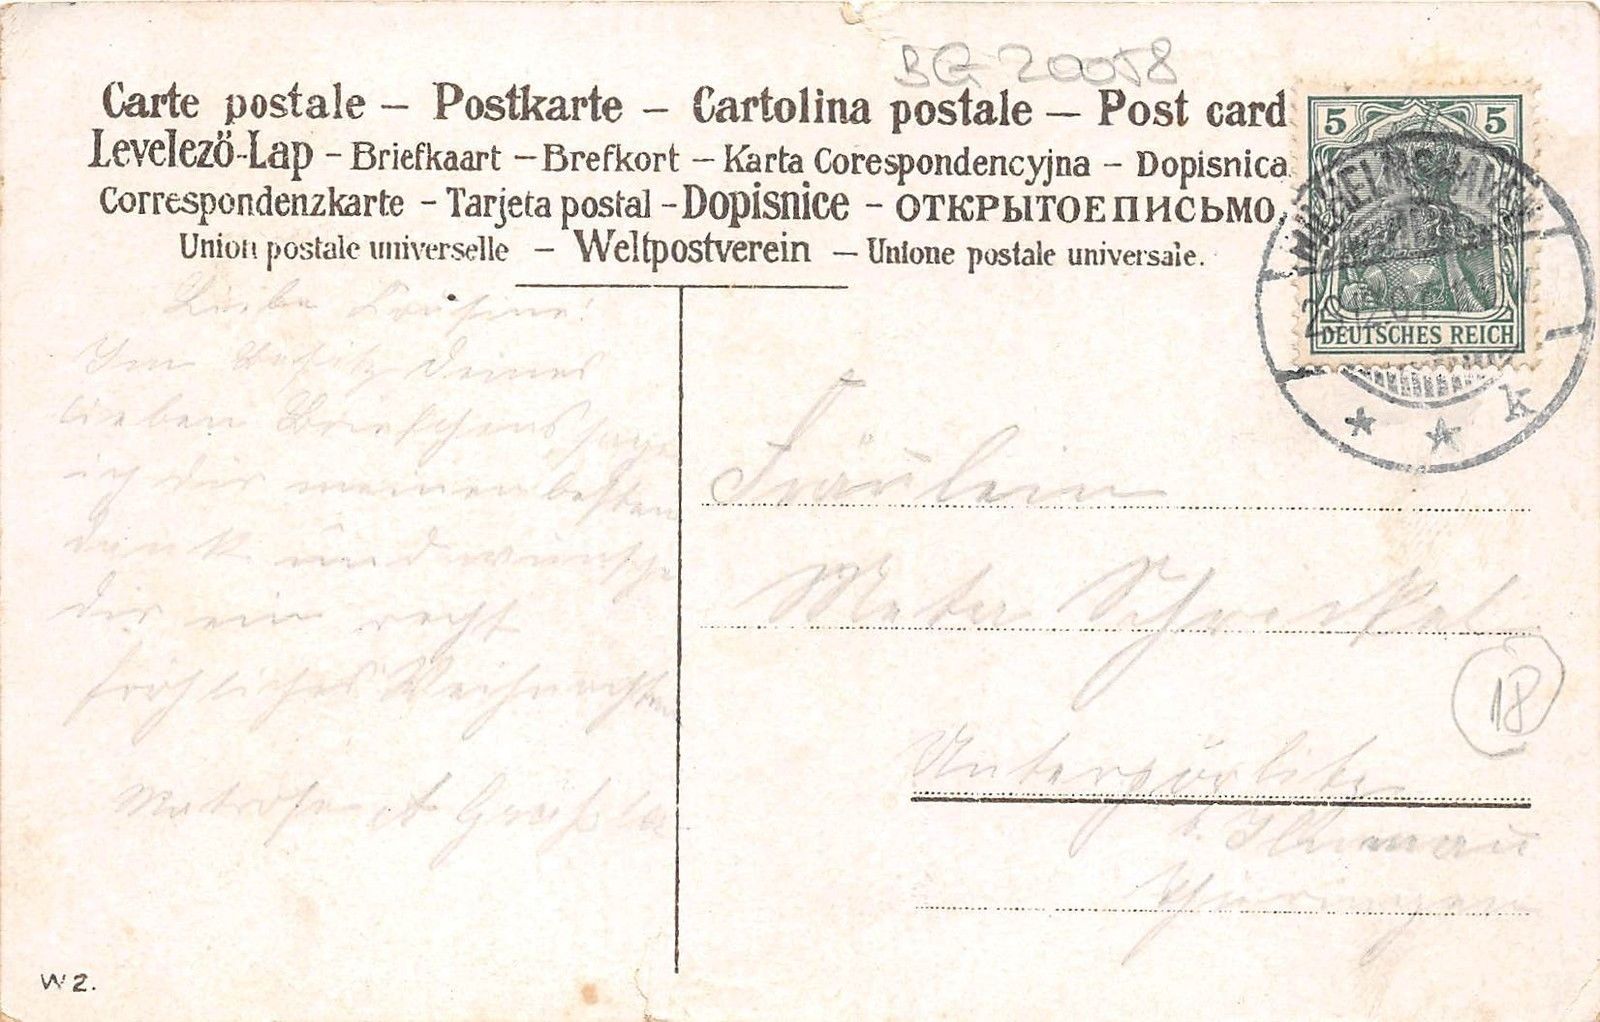 BG 20058
Carte postale – Postkarte – Cartolina postale – Post card
Levelező-Lap – Briefkaart – Brefkort – Karta Corespondencyjna – Dopisnica
Correspondenzkarte – Tarjeta postal – Dopisnice – ОТКРЫТОЕ ПИСЬМО.
Union postale universelle – Weltpostverein – Unione postale universale.
5 5
WILHELMSHAVEN
DEUTSCHES REICH
* * k
Liebe Cousine!
Im Besitz Deines
lieben Briefchens sage
ich dir meinen besten
Dank und wünsche
dir ein recht
fröhliches Weihnachten
Matrose
Fräulein
Meta Schreckel
Unterpörlitz
b. Ilmenau
Thüringen
18
W 2.